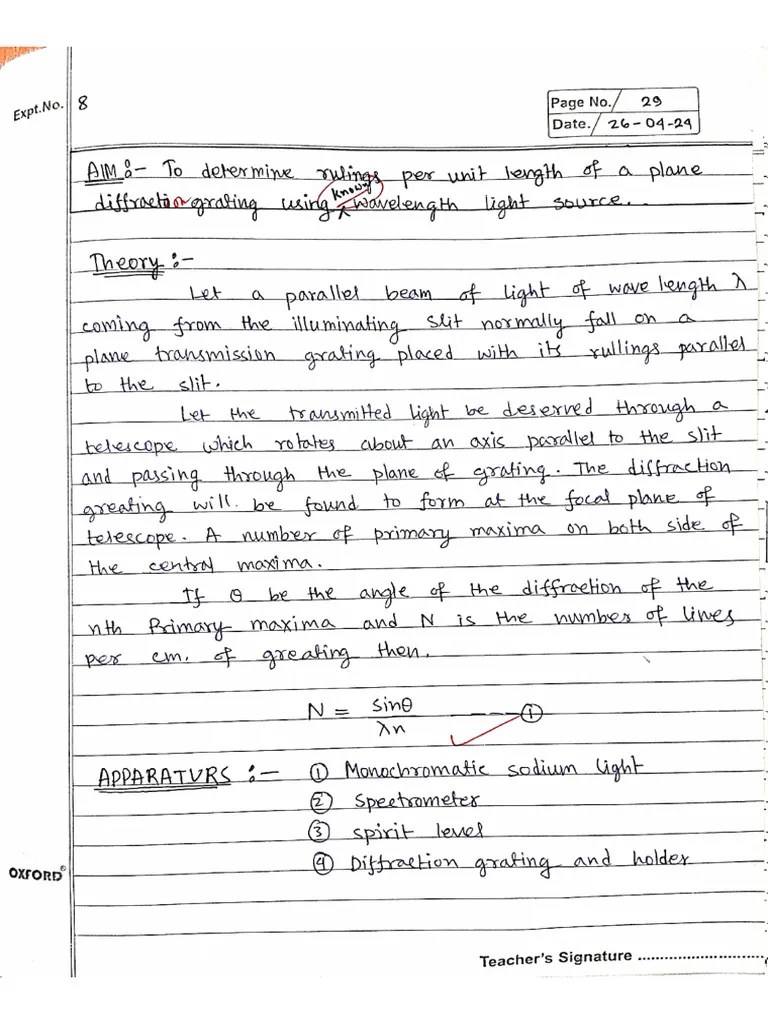 Expt.No. 8
Page No. 29
Date. 26-04-24
AIM :- To determine rulings per unit length of a plane
diffraction grating using known wavelength light source.
Theory :-
Let a parallel beam of light of wave length λ
coming from the illuminating slit normally fall on a
plane transmission grating placed with its rullings parallel
to the slit.
Let the transmitted light be deserved through a
telescope which rotates about an axis parallel to the slit
and passing through the plane of grating. The diffraction
greating will be found to form at the focal plane of
telescope. A number of primary maxima on both side of
the central maxima.
If θ be the angle of the diffraction of the
nth Primary maxima and N is the number of lines
per cm. of greating then.
N = sinθ / λn ---- ①
APPARATURS :- ① Monochromatic sodium light
② Spectrometer
③ spirit level
④ Diffraction grating and holder
OXFORD®
Teacher's Signature ............................